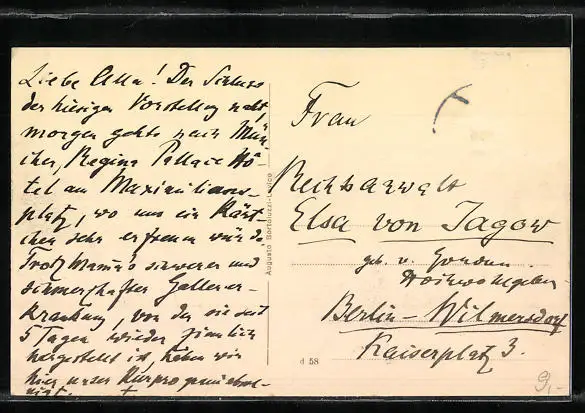 Liebe Ella! Der Schluss
der hiesigen Vorstellung naht,
morgen gehts nach Mün-
chen, Regina Pallace Hô-
tel am Maximilians-
platz, wo uns ein Kärt-
chen sehr erfreuen würde.
Trotz Mama's schwerer und
schmerzhafter Gallener-
krankung, von der sie seit
5 Tagen wieder ziemlich
hergestellt ist, haben wir
hier unser Kurprogramm
Augusto Bortoluzzi-Levico
Frau
Rechtsanwalt
Elsa von Jagow
geb. v. Gordon
Hochwohlgeboren
Berlin-Wilmersdorf
Kaiserplatz 3.
d 58
9,-